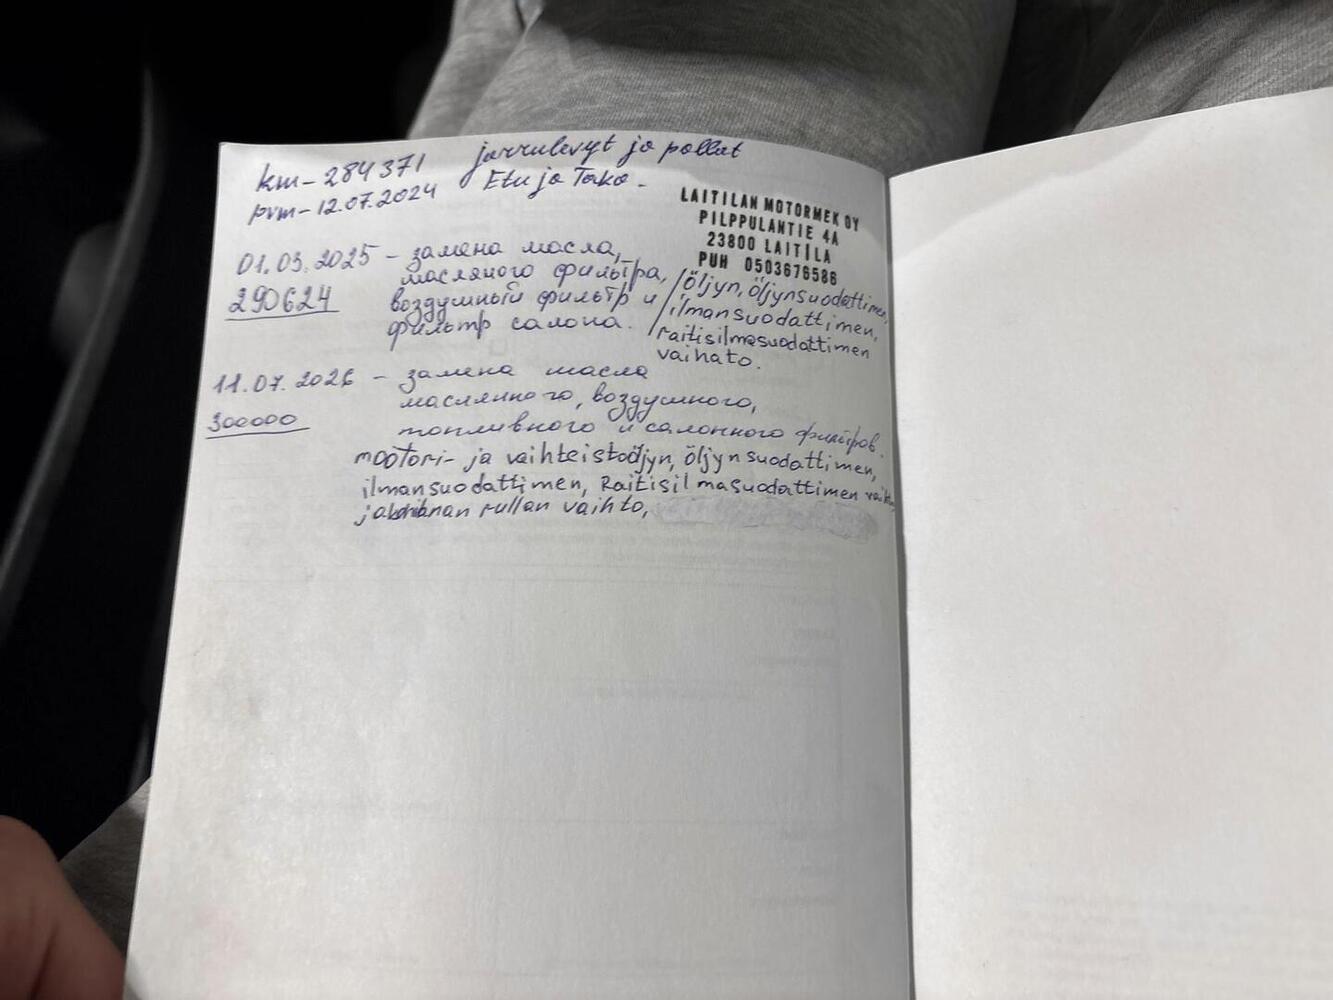 km-284371 jarrulevyt ja pallat
pvm-12.07.2024 Etu ja Taka.
LAITILAN MOTORMEK OY
PILPPULANTIE 4A
23800 LAITILA
PUH 0503676586
01.03.2025 - замена масла,
290624 масляного фильтра,
воздушный фильтр и
фильтр салона.
/öljyn, öljynsuodattimen,
ilmansuodattimen,
raitisilmasuodattimen
vaihato.
11.07.2026 - замена масла
300000 масляного, воздушного,
топливного и салонного фильтров.
moottori- ja vaihteistoöljyn, öljynsuodattimen,
ilmansuodattimen, Raitisilmasuodattimen
rullan vaihto,